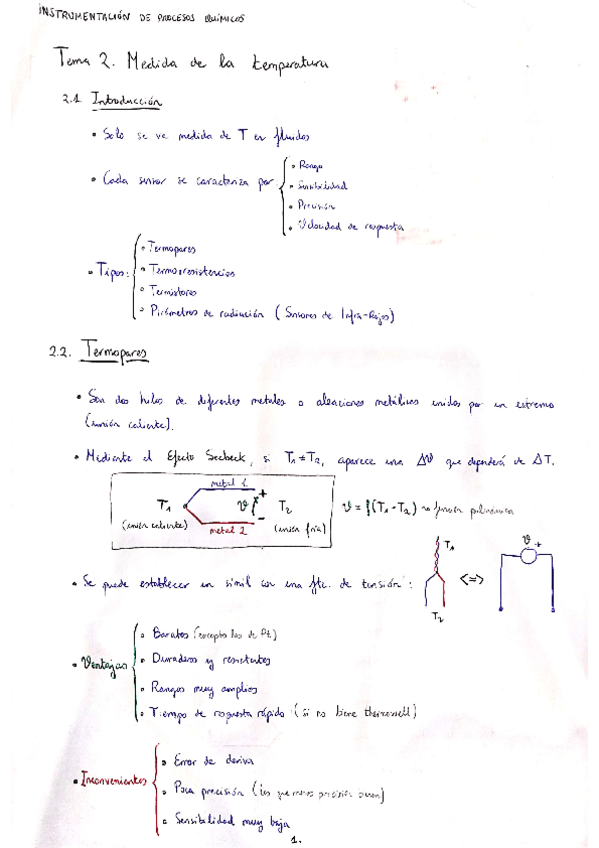 INSTRUMENTACIÓN DE PROCESOS QUÍMICOS
Tema 2. Medida de la temperatura
2.1 Introducción
• Solo se ve medida de T en fluidos
• Cada sensor se caracteriza por
• Rango
• Sensibilidad
• Precisión
• Velocidad de respuesta
• Tipos:
• Termopares
• Termorresistencias
• Termistores
• Pirómetros de radiación (Sensores de Infra-Rojos)
2.2. Termopares
• Son dos hilos de diferentes metales o aleaciones metálicas unidos por un extremo
(unión caliente).
• Mediante el Efecto Seebeck, si T1 ≠ T2, aparece una ΔV que dependerá de ΔT.
metal 1
T1 V + T2
(unión caliente) - (unión fría)
metal 2
V = f(T1-T2) función polinómica
• Se puede establecer un símil con una fte. de tensión:
T1
T2
<=>
V +
• Ventajas
• Baratos (excepto los de Pt)
• Duraderos y resistentes
• Rangos muy amplios
• Tiempo de respuesta rápido (si no tiene thermowell)
• Inconvenientes
• Error de deriva
• Poca precisión (los que menos precisión tienen)
• Sensibilidad muy baja
1.